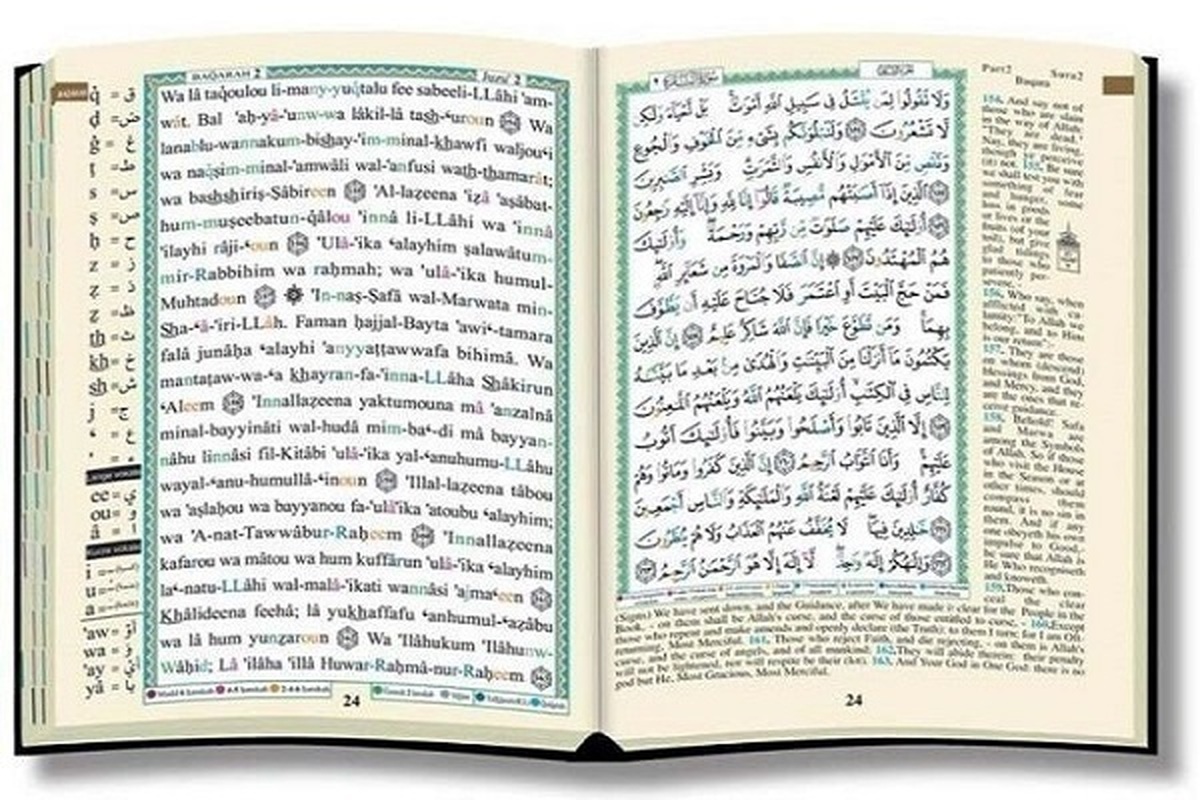 BAQARAH 2
Juzu' 2
q̇ = ق
ḍ = ض
ġ = غ
ṭ = ط
s = س
ṣ = ص
ḥ = ح
z = ز
ẓ = ظ
th = ث
kh = خ
sh = ش
j = ج
ee = ي
ou = و
â = ا
i
u
a
'aw = أَوْ
wa = وَ
'ay = أَيْ
yâ = يا
Wa lâ taq̇oulou li-many-yuq̇talu fee sabeeli-LLâhi 'am-
wât. Bal 'aḥ-yâ-'unw-wa lâkil-lâ tash-ʻuroun Wa
lanablu-wannakum-bishay-'im-minal-khawfi waljouʻi
wa naq̇ṣim-minal-'amwâli wal-'anfusi wath-thamarât;
wa bashshiriṣ-Ṣâbireen 'Al-lazeena 'izâ 'aṣâbat-
hum-muṣeebatun-q̇âlou 'innâ li-LLâhi wa 'innâ
'ilayhi râji-ʻoun 'Ulâ-'ika ʻalayhim ṣalawâtum-
mir-Rabbihim wa raḥmah; wa 'ulâ-'ika humul-
Muhtadoun 'In-naṣ-Ṣafâ wal-Marwata min-
Sha-ʻâ-'iri-LLâh. Faman ḥajjal-Bayta 'awiʻ-tamara
falâ junâḥa ʻalayhi 'anyyaṭṭawwafa bihimâ. Wa
mantaṭaw-wa-ʻa khayran-fa-'inna-LLâha Shâkirun
ʻAleem 'Innallazeena yaktumouna mâ 'anzalnâ
minal-bayyinâti wal-hudâ mim-baʻ-di mâ bayyan-
nâhu linnâsi fil-Kitâbi 'ulâ-'ika yal-ʻanuhumu-LLâhu
wayal-ʻanu-humullâ-ʻinoun 'Illal-lazeena tâbou
wa 'aṣlaḥou wa bayyanou fa-'ulâ'ika 'atoubu ʻalayhim;
wa 'A-nat-Tawwâbur-Raḥeem 'Innallazeena
kafarou wa mâtou wa hum kuffârun 'ulâ-'ika ʻalayhim
laʻ-natu-LLâhi wal-malâ-'ikati wannâsi 'ajmaʻeen
Khâlideena feehâ; lâ yukhaffafu ʻanhumul-ʻazâbu
wa lâ hum yunẓaroun Wa 'Ilâhukum 'Ilâhunw-
Wâḥid; Lâ 'ilâha 'illâ Huwar-Raḥmâ-nur-Raḥeem
24
وَلَا تَقُولُوا لِمَن يُقْتَلُ فِي سَبِيلِ اللَّهِ أَمْوَاتٌ بَلْ أَحْيَاءٌ وَلَٰكِن
لَّا تَشْعُرُونَ ١٥٤ وَلَنَبْلُوَنَّكُم بِشَيْءٍ مِّنَ الْخَوْفِ وَالْجُوعِ
وَنَقْصٍ مِّنَ الْأَمْوَالِ وَالْأَنفُسِ وَالثَّمَرَاتِ وَبَشِّرِ الصَّابِرِينَ
١٥٥ الَّذِينَ إِذَا أَصَابَتْهُم مُّصِيبَةٌ قَالُوا إِنَّا لِلَّهِ وَإِنَّا إِلَيْهِ رَاجِعُونَ
١٥٦ أُولَٰئِكَ عَلَيْهِمْ صَلَوَاتٌ مِّن رَّبِّهِمْ وَرَحْمَةٌ وَأُولَٰئِكَ
هُمُ الْمُهْتَدُونَ ١٥٧ إِنَّ الصَّفَا وَالْمَرْوَةَ مِن شَعَائِرِ اللَّهِ
فَمَنْ حَجَّ الْبَيْتَ أَوِ اعْتَمَرَ فَلَا جُنَاحَ عَلَيْهِ أَن يَطَّوَّفَ
بِهِمَا وَمَن تَطَوَّعَ خَيْرًا فَإِنَّ اللَّهَ شَاكِرٌ عَلِيمٌ ١٥٨ إِنَّ الَّذِينَ
يَكْتُمُونَ مَا أَنزَلْنَا مِنَ الْبَيِّنَاتِ وَالْهُدَىٰ مِن بَعْدِ مَا بَيَّنَّاهُ
لِلنَّاسِ فِي الْكِتَابِ أُولَٰئِكَ يَلْعَنُهُمُ اللَّهُ وَيَلْعَنُهُمُ اللَّاعِنُونَ
١٥٩ إِلَّا الَّذِينَ تَابُوا وَأَصْلَحُوا وَبَيَّنُوا فَأُولَٰئِكَ أَتُوبُ
عَلَيْهِمْ وَأَنَا التَّوَّابُ الرَّحِيمُ ١٦٠ إِنَّ الَّذِينَ كَفَرُوا وَمَاتُوا وَهُمْ
كُفَّارٌ أُولَٰئِكَ عَلَيْهِمْ لَعْنَةُ اللَّهِ وَالْمَلَائِكَةِ وَالنَّاسِ أَجْمَعِينَ
١٦١ خَالِدِينَ فِيهَا لَا يُخَفَّفُ عَنْهُمُ الْعَذَابُ وَلَا هُمْ يُنظَرُونَ
١٦٢ وَإِلَٰهُكُمْ إِلَٰهٌ وَاحِدٌ لَّا إِلَٰهَ إِلَّا هُوَ الرَّحْمَٰنُ الرَّحِيمُ ١٦٣
Part2 Sura2
Baqara
154. And say not of
those who are slain
in the way of Allah:
"They are dead."
Nay, they are living,
though ye perceive
(it) not. 155. Be sure
we shall test you with
something of fear
and hunger, some
loss in goods
or lives or the
fruits (of your
toil), but give
glad tidings
to those who
patiently per-
severe, -
156. Who say, when
afflicted with ca-
lamity:"To Allah we
belong, and to Him
is our return":-
157. They are those
on whom (descend)
blessings from God,
and Mercy, and they
are the ones that re-
ceive guidance.
158. Behold! Safa
and Marwa are
among the Symbols
of Allah. So if those
who visit the House
in the Season or at
other times, should
compass them
round, it is no sin in
them. And if any
one obeyeth his own
impulse to Good,-
be sure that Allah is
He Who recogniseth
and knoweth.
159.Those who con-
ceal the clear
(Signs) We have sent down, and the Guidance, after We have made it clear for the People in the
Book,- on them shall be Allah's curse, and the curse of those entitled to curse, - 160.Except
those who repent and make amends and openly declare (the Truth): to them I turn; for I am Oft-
returning, Most Merciful. 161. Those who reject Faith, and die rejecting, - on them is Allah's
curse, and the curse of angels, and of all mankind; 162.They will abide therein: their penalty
will not be lightened, nor will respite be their (lot). 163. And Your God is One God: there is no
god but He, Most Gracious, Most Merciful.
24